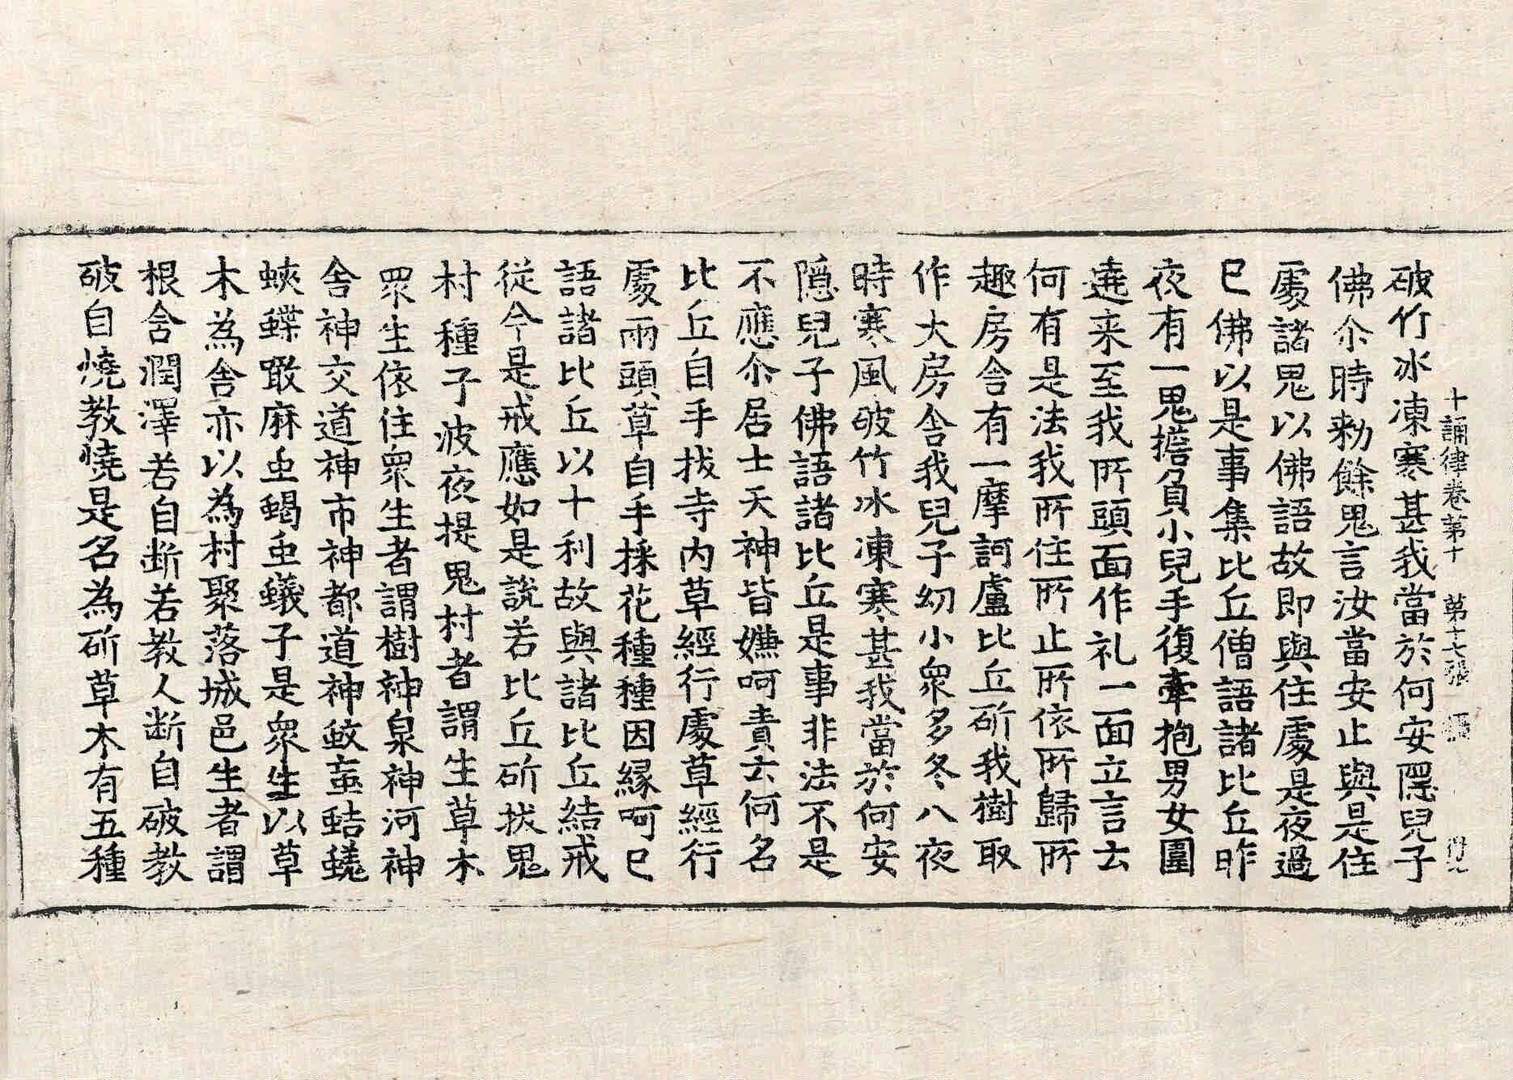 十誦律卷第十　第十七張
破竹冰凍寒甚我當於何安隱兒子
佛尒時勑餘鬼言汝當安止與是住
處諸鬼以佛語故即與住處是夜過
巳佛以是事集比丘僧語諸比丘昨
夜有一鬼擔負小兒手復牽抱男女圍
遶来至我所頭面作礼一面立言去
何有是法我所住所止所依所歸所
趣房舍有一摩訶盧比丘斫我樹取
作大房舍我兒子幼小衆多冬八夜
時寒風破竹冰凍寒甚我當於何安
隱兒子佛語諸比丘是事非法不是
不應尒居士天神皆嫌呵責去何名
比丘自手拔寺内草經行處草經行
處兩頭草自手採花種種因縁呵巳
語諸比丘以十利故與諸比丘結戒
從今是戒應如是說若比丘斫拔鬼
村種子波夜提鬼村者謂生草木
衆生依住衆生者謂樹神泉神河神
舍神交道神市神都道神蚊䖟蛣蜣
蛺蝶噉麻虫蝎虫蟻子是衆生以草
木為舍亦以為村聚落城邑生者謂
根含潤澤若自断若教人断自破教
破自燒教燒是名為斫草木有五種